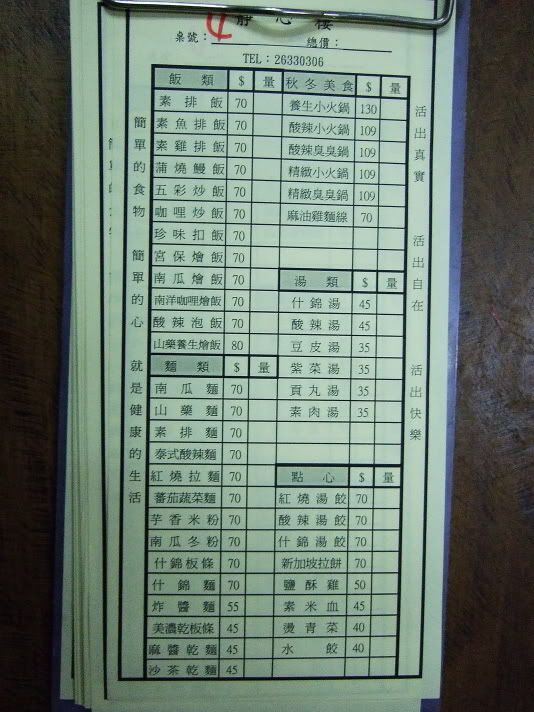 靜心樓
4
桌號： 總價：
TEL：26330306
飯類 $ 量
素排飯 70
素魚排飯 70
素雞排飯 70
蒲燒鰻飯 70
五彩炒飯 70
咖哩炒飯 70
珍味扣飯 70
宮保燴飯 70
南瓜燴飯 70
南洋咖哩燴飯 70
酸辣泡飯 70
山藥養生燴飯 80
麵類 $ 量
南瓜麵 70
山藥麵 70
素排麵 70
泰式酸辣麵 70
紅燒拉麵 70
蕃茄蔬菜麵 70
芋香米粉 70
南瓜冬粉 70
什錦板條 70
什錦麵 70
炸醬麵 55
美濃乾板條 45
麻醬乾麵 45
沙茶乾麵 45
秋冬美食 $ 量
養生小火鍋 130
酸辣小火鍋 109
酸辣臭臭鍋 109
精緻小火鍋 109
精緻臭臭鍋 109
麻油雞麵線 70
湯類 $ 量
什錦湯 45
酸辣湯 45
豆皮湯 35
紫菜湯 35
貢丸湯 35
素肉湯 35
點心 $ 量
紅燒湯餃 70
酸辣湯餃 70
什錦湯餃 70
新加坡拉餅 70
鹽酥雞 50
素米血 45
燙青菜 40
水餃 40
簡單的食物 簡單的心 就是健康的生活
活出真實 活出自在 活出快樂